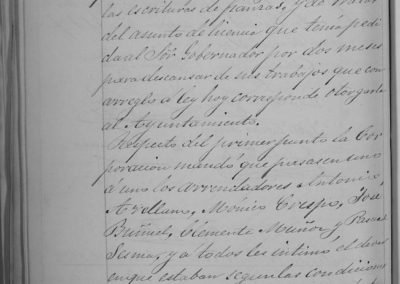 las escrituras de paneras, y de tratar
del asunto de licencia que tenía pedi
da al Sôr Gobernador por dos meses
para descansar de sus trabajos que con
arreglo á ley hoy corresponde otorgarla
al Ayuntamiento.
Respecto del primer punto la Cor
poracion mandó que pasasen uno
á uno los arrendadores Antonio
Arellano, Mónico Crespo, José
Buñuel, Clemente Muñoz y Pascual
Sesma, y á todos les intimó el
en que estaban segun las condiciones